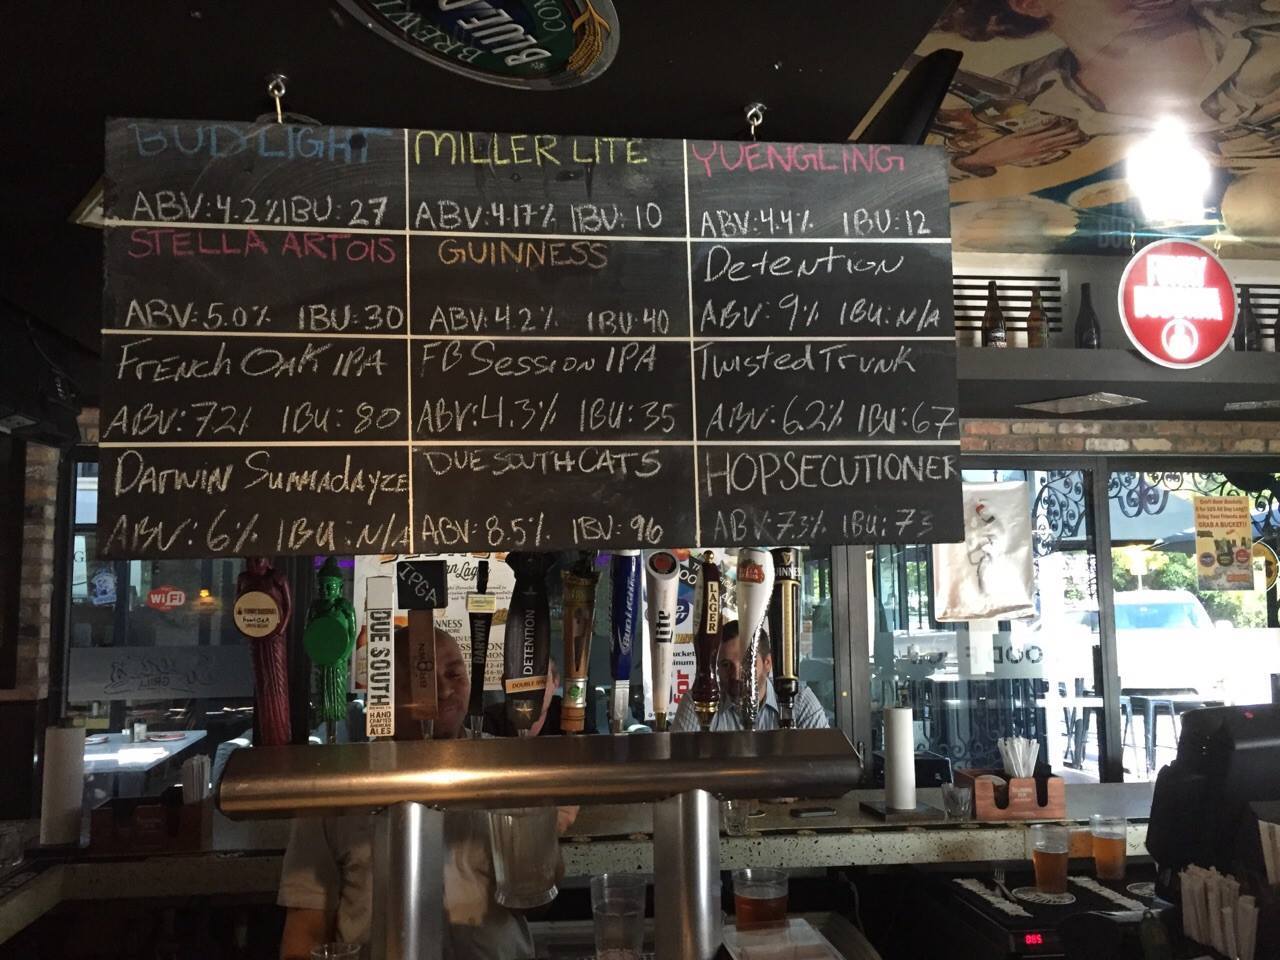 BREWI
BLUE
CO
BUD LIGHT
ABV: 4.2% IBU: 27
MILLER LITE
ABV: 4.17% IBU: 10
YUENGLING
ABV: 4.4% IBU: 12
STELLA ARTOIS
ABV: 5.0% IBU: 30
GUINNESS
ABV: 4.2% IBU: 40
Detention
ABV: 9% IBU: N/A
French Oak IPA
ABV: 72% IBU: 80
FB Session IPA
ABV: 4.3% IBU: 35
Twisted Trunk
ABV: 6.2% IBU: 67
Darwin Summadayze
ABV: 6% IBU: N/A
DUE SOUTH CAT5
ABV: 8.5% IBU: 96
HOPSECUTIONER
ABV: 7.3% IBU: 73
WiFi
IPGA
DUE SOUTH
HAND
CRAFTED
ALES
DARWIN
DETENTION
DOUBLE IPA
Bud Light
Lite
LAGER
GUINNESS
Craft Beer Buckets
5 for $25 All Day Long!!
Bring Your Friends and
GRAB A BUCKET!!
GRILL
OOD F
085